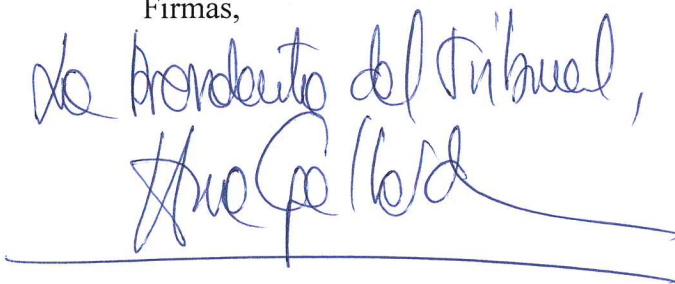 Firmas,
La Presidenta del Tribunal,
Ana